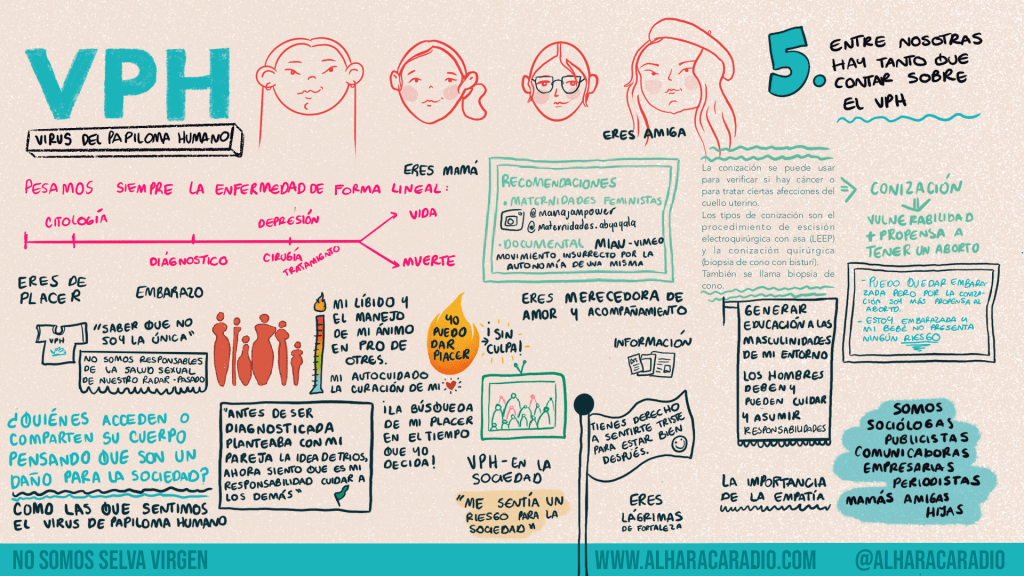 VPH
VIRUS DEL PAPILOMA HUMANO
5.
ENTRE NOSOTRAS
HAY TANTO QUE
CONTAR SOBRE
EL VPH
ERES AMIGA
ERES MAMÁ
PESAMOS SIEMPRE LA ENFERMEDAD DE FORMA LINEAL:
CITOLOGÍA
DIÁGNOSTICO
DEPRESIÓN
CIRUGÍA
TRATAMIENTO
VIDA
MUERTE
RECOMENDACIONES
• MATERNIDADES FEMINISTAS
@manajampower
@maternidades.abyayala
• DOCUMENTAL MIAU-VIMEO
MOVIMIENTO INSURRECTO POR LA
AUTONOMÍA DE UNA MISMA
La conización se puede usar
para verificar si hay cáncer o
para tratar ciertas afecciones del
cuello uterino.
Los tipos de conización son el
procedimiento de escisión
electroquirúrgica con asa (LEEP)
y la conización quirúrgica
(biopsia de cono con bisturí).
También se llama biopsia de
cono.
CONIZACIÓN
VULNERABILIDAD
+ PROPENSA A
TENER UN ABORTO
- PUEDO QUEDAR EMBARA-
ZADA PERO POR LA CONIZA-
CIÓN SOY MÁS PROPENSA AL
ABORTO.
- ESTOY EMBARAZADA Y
MI BEBÉ NO PRESENTA
NINGÚN RIESGO
ERES DE
PLACER
EMBARAZO
VPH
"SABER QUE NO
SOY LA ÚNICA"
NO SOMOS RESPONSABLES
DE LA SALUD SEXUAL
DE NUESTRO RADAR-PASADO
MI LÍBIDO Y
EL MANEJO
DE MI ÁNIMO
EN PRO DE
OTRES.
MI AUTOCUIDADO
LA CURACIÓN DE MI
YO
PUEDO
DAR
PLACER
¡SIN
CULPA!
ERES MERECEDORA DE
AMOR Y ACOMPAÑAMIENTO
INFORMACIÓN
GENERAR
EDUCACIÓN A LAS
MASCULINIDADES
DE MI ENTORNO
LOS HOMBRES
DEBEN Y
PUEDEN CUIDAR
Y ASUMIR
RESPONSABILIDADES
¿QUIÉNES ACCEDEN O
COMPARTEN SU CUERPO
PENSANDO QUE SON UN
DAÑO PARA LA SOCIEDAD?
COMO LAS QUE SENTIMOS
EL VIRUS DE PAPILOMA HUMANO
"ANTES DE SER
DIAGNOSTICADA
PLANTEABA CON MI
PAREJA LA IDEA DE TRIOS,
AHORA SIENTO QUE ES MI
RESPONSABILIDAD CUIDAR A
LOS DEMÁS"
¡LA BÚSQUEDA
DE MI PLACER
EN EL TIEMPO
QUE YO
DECIDA!
VPH-EN LA
SOCIEDAD
"ME SENTÍA UN
RIESGO PARA LA
SOCIEDAD"
TIENES DERECHO
A SENTIRTE TRISTE
PARA ESTAR BIEN
DESPUÉS.
ERES
LÁGRIMAS
DE FORTALEZA
LA IMPORTANCIA
DE LA EMPATÍA
SOMOS
SOCIÓLOGAS
PUBLICISTAS
COMUNICADORAS
EMPRESARIAS
PERIODISTAS
MAMÁS AMIGAS
HIJAS
NO SOMOS SELVA VIRGEN
WWW.ALHARACARADIO.COM
@ALHARACARADIO